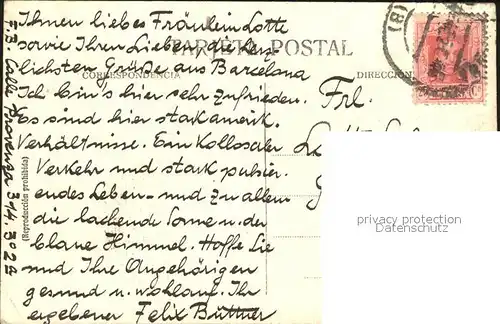 Ihnen liebes Fräulein Lotte
sowie Ihren Lieben die herz-
TARJETA POSTAL
lichsten Grüße aus Barcelona
CORRESPONDENCIA
DIRECCION
Ich bin's hier sehr zufrieden.
Frl.
Es sind hier stark amerik.
Verhältnisse. Ein Kollosaler
Verkehr und stark pulsier-
endes Leben – und zu allem
die lachende Sonne u. der
blaue Himmel. Hoffe Sie
und Ihre Angehörigen
gesund u. wohlauf. Ihr
ergebener Felix Büttner
F. B. Calle Provenza 314. 3º 2ª
(Reproducción prohibida)
(8)
privacy protection
Datenschutz